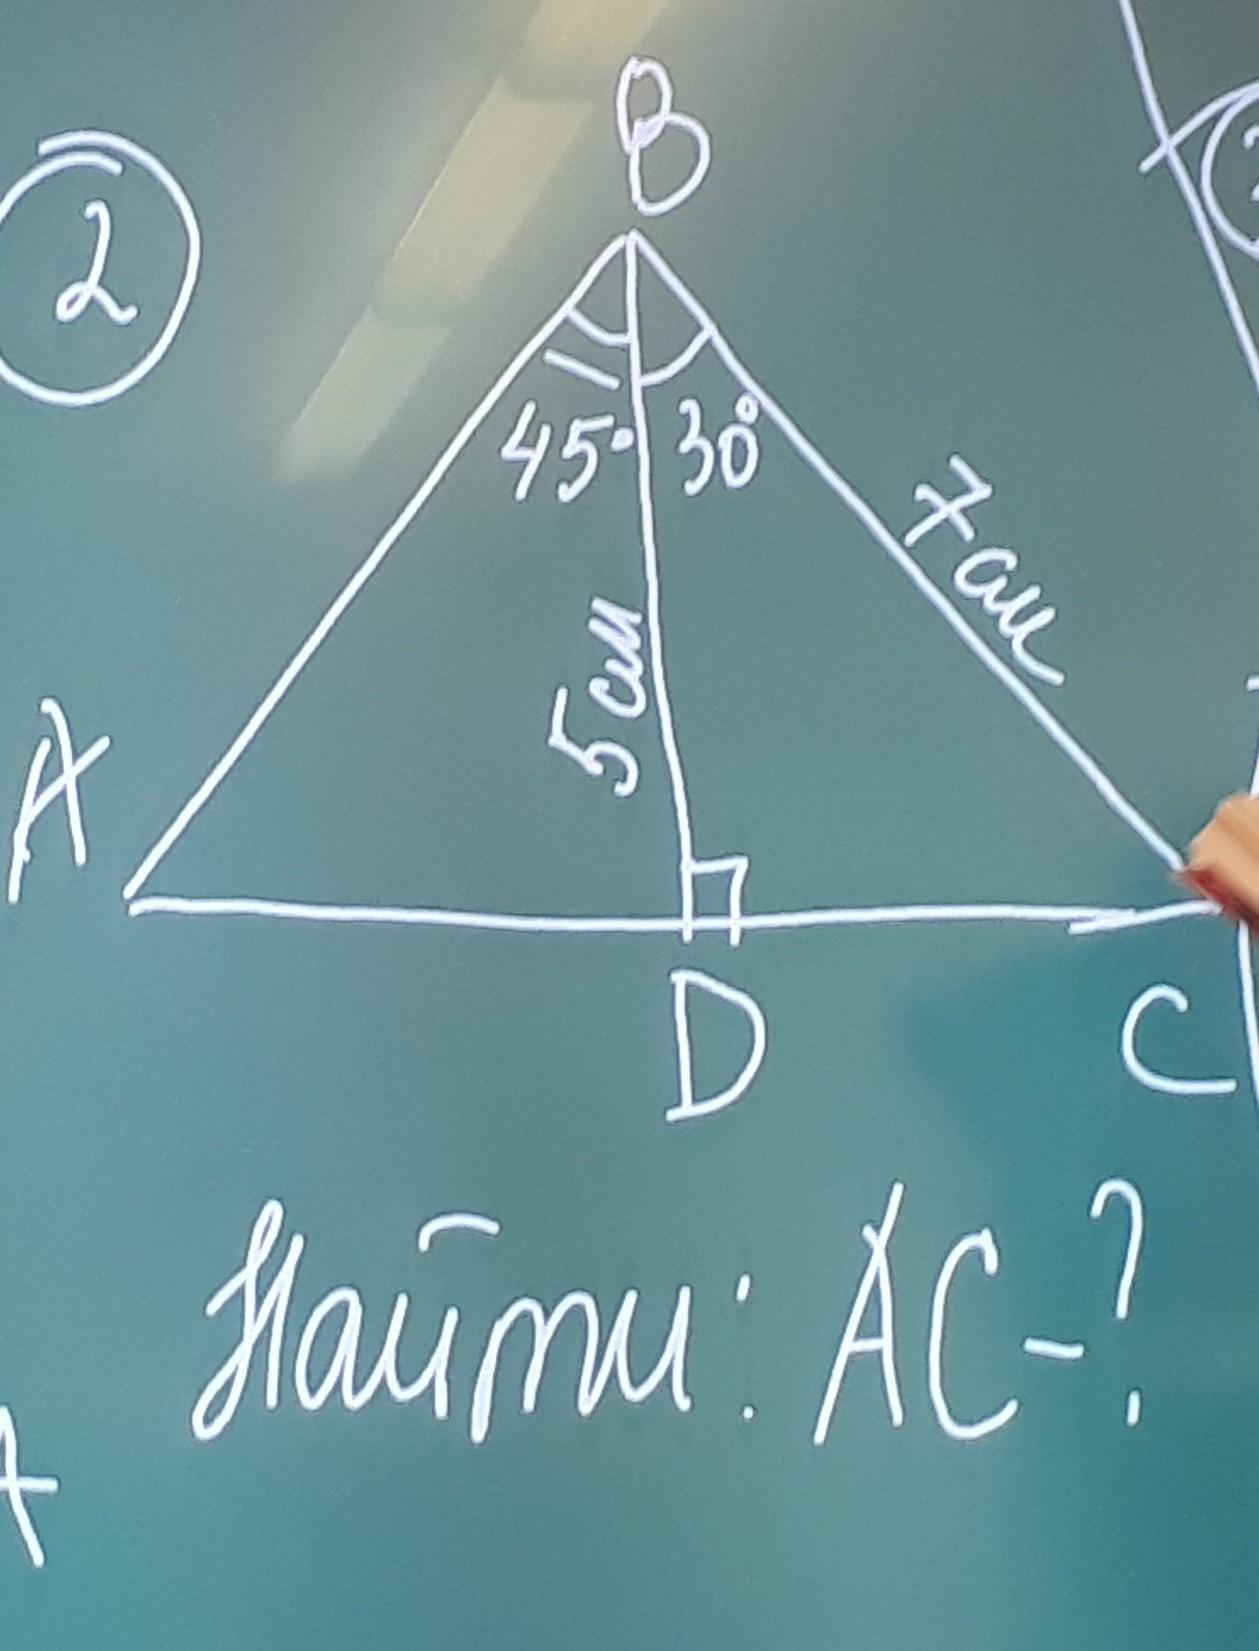 2
B
45° 30°
7 см
5 см
A
D
C
Найти: AC-?